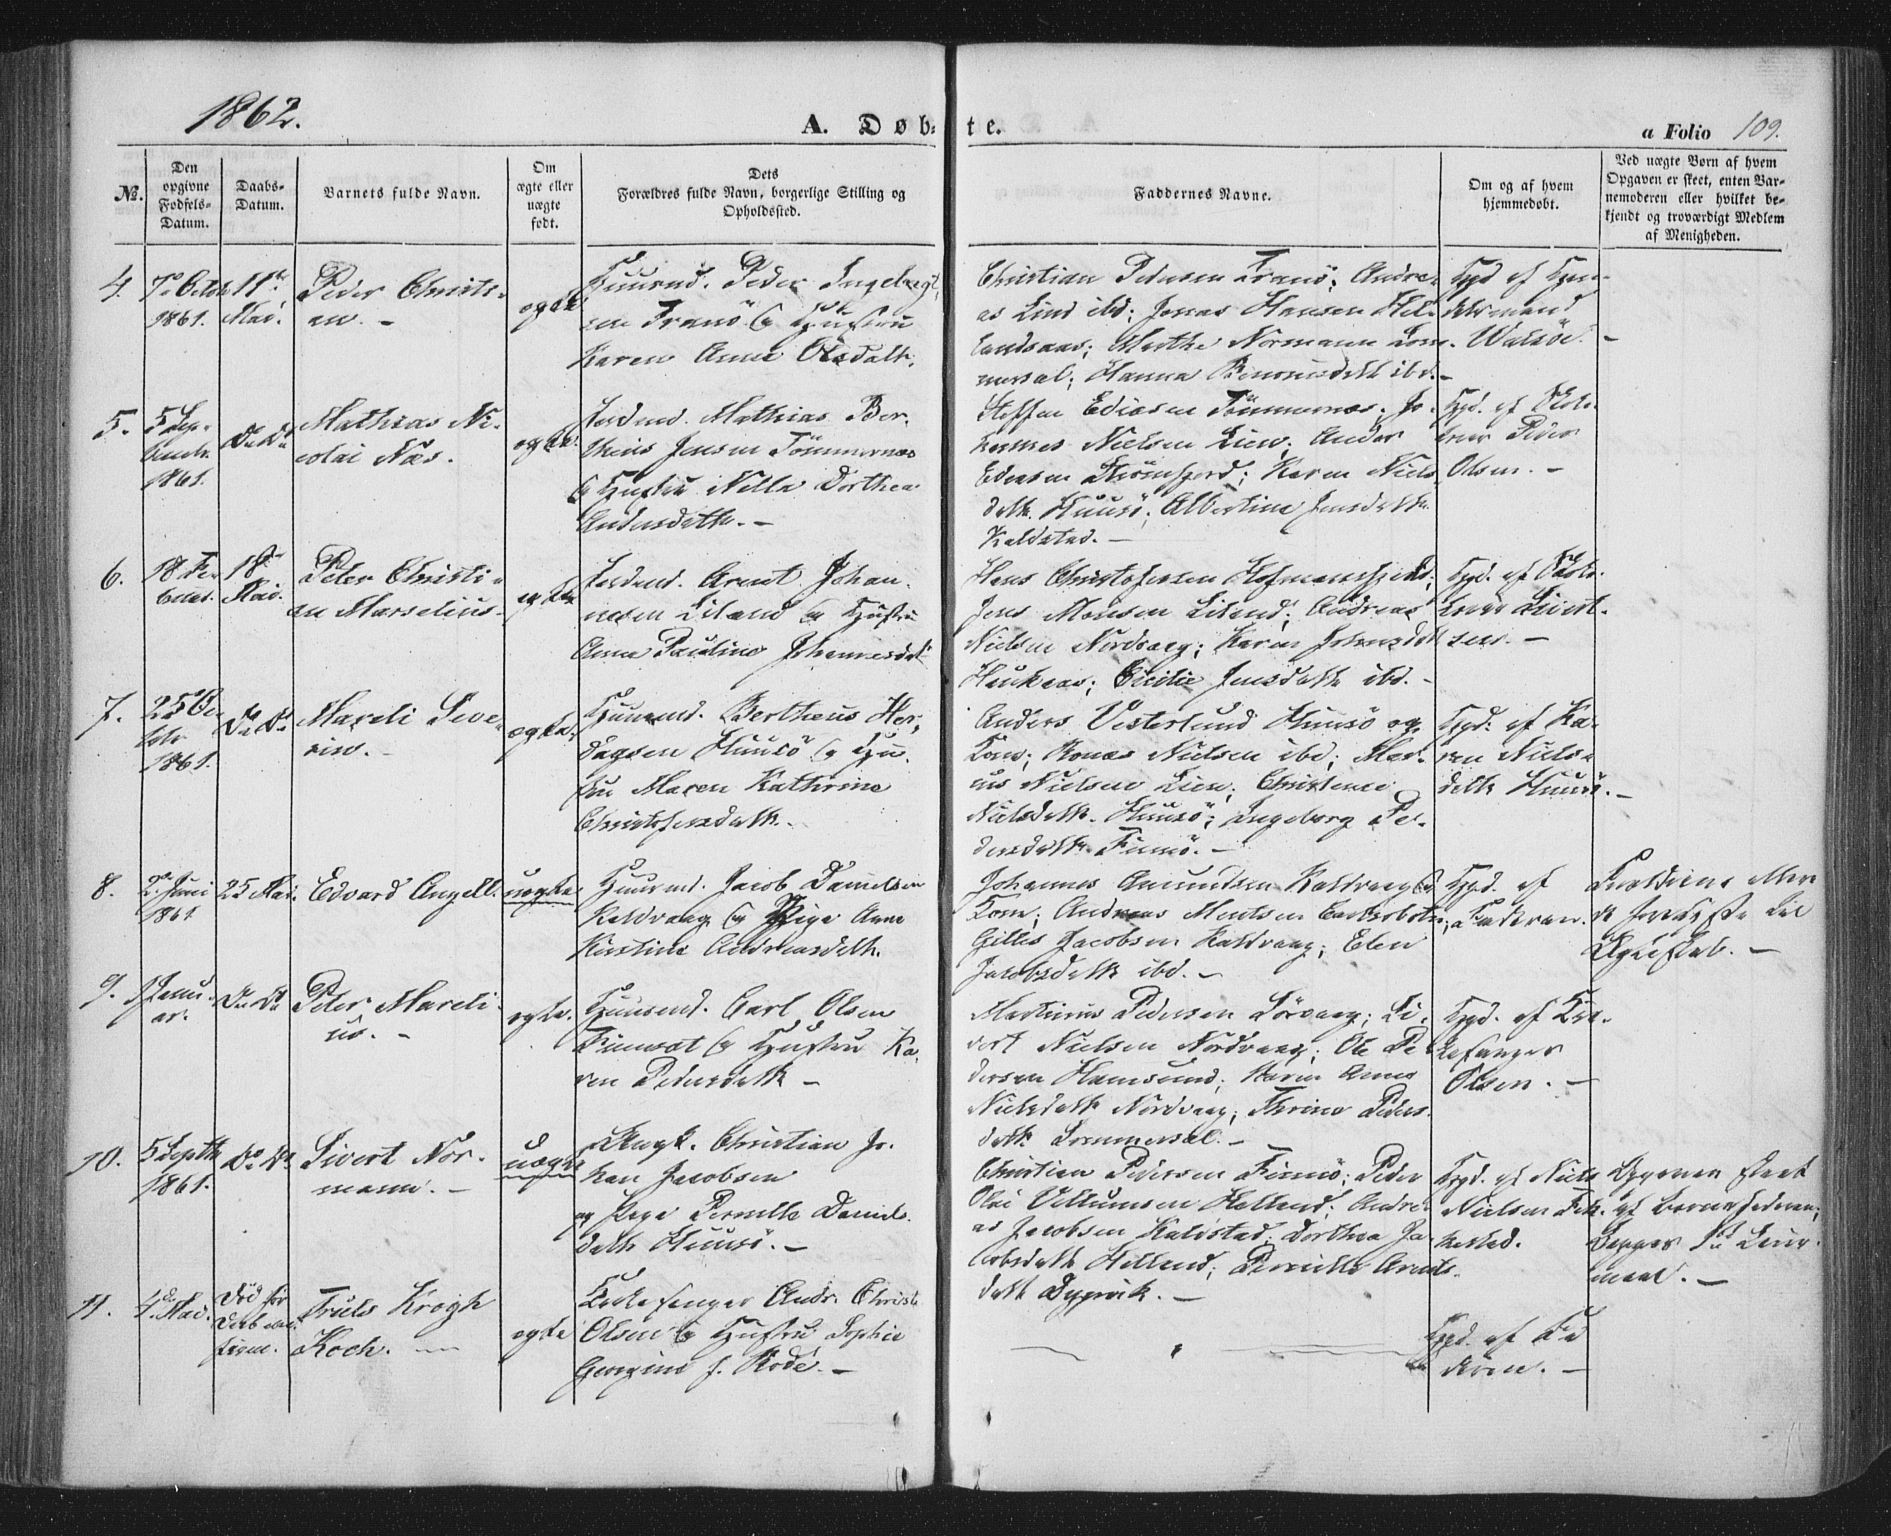 1862.
A. Døb-te.
a Folio 109.
№.
Den opgivne Fødsels-Datum.
Daabs-Datum.
Barnets fulde Navn.
Om ægte eller uægte født.
Dets Forældres fulde Navn, borgerlige Stilling og Opholdssted.
Faddernes Navne.
Om og af hvem hjemmedøbt.
Ved uægte Børn af hvem Opgaven er skeet, enten Bar-
nemoderen eller hvilket be-
kjendt og troværdigt Medlem
af Menigheden.
4.
7de Octob
1861.
11te
Mai.
Peder Christi-
an. -
ægte
Huusmd. Peder Ingebrigt-
sen Tranö & Hustru
Karen Anna Olsdatt.
Christian Pedersen Tranö; Andre-
as Lind ibd; Jonas Hansen Hel-
landsaas; Marthe Normann Lom-
mersal; Hanna
ibd. -
Hjd af
Walsöe. -
5.
5 Sep-
tembr
1861.
Do Do
Mathias Ni-
colai Näs.
ægte.
Mathias Ber-
theus Jensen Tömmernæs
& Hustru Nella Dorthea
Andersdatt. -
Steffen Ediasen Tömmernæs; Jo-
hannes Nielsen Lien; Ander
Ediasen Strömfjord; Karen Niels-
datt. Huusö; Albertine Jensdatt.
Kaldstad. -
Hjd. af
Peder
Olsen. -
6.
18 Fe-
bruar.
18de
Mai.
Peter Christi-
an Marselius.
ægte
Arent Johan-
nesen Liland & Hustru
Anna Pauline Johannesdatt
Hans Christofersen
Jens Monsen Liland; Andreas
Nielsen Nordvaag; Karen Johansdatt
ibd. -
Cecilie Jensdatt
Hjd. af
Sivert-
sen. -
7.
25 Oc-
tobr
1861.
Do Do
Mareli Seve-
rin. -
ægte.
Huusmd. Bertheus Her-
dagsen Huusö & Hu-
stru Maren Kathrine
Christofersdatt.
Anders Vesterlund Huusö og
Kone; Jonas Nielsen ibd; Mari-
us Nielsen Lien; Christence
Nielsdatt. Huusö; Ingeborg Pe-
dersdatt Finnö. -
Hjd: af Ka-
ren Niels-
datt Huusö. -
8.
2. Juni
1861
25 Mai.
Edvard Angell.
uægte
Huusmd. Jacob Danielsen
Kaldvaag & Pige Anne
Kirstine Andreasdatt.
Johannes Amundsen Kaldvaag &
Kone; Andreas Mentsen
Gilles Jacobsen Kaldvaag; Elen
Jacobsdatt ibd. -
Hjd. af
Faderen.
Forældrene
til
Ægteskab. -
9.
Janu-
ar.
Do Do
Peter Mareli-
us. -
ægte.
Huusmd. Carl Olsen
& Hustru Ka-
ren Pedersdatt -
Martinus Pedersen Sörvaag; Si-
vert Nielsen Nordvaag; Ole Pe-
dersen Hamsund; Karen Anna
Nielsdatt Nordvaag; Thrine Peders-
datt Lommersal. -
Hjd. af Kir-
kesanger
Olsen. -
10.
5 Septb
1861.
Do Do
Sivert Nor-
mann. -
uægte
Ungk. Christian Jo-
han Jacobsen
og Pige Pernille Daniels-
datt Huusö. -
Christian Pedersen Finnö; Peder
Olai Villumsen Helland; Andre-
as Jacobsen Kaldstad; Dorthea Ja-
cobsdatt Helland; Pernille Arents-
datt Dypvik. -
Hjd. af Niels
Nielsen
Opgaven skeet
af Barnefaderen;
Begges 1ste Leier-
maal. -
11.
4de Mai.
Död för
Daab
Truls Krogh
Koch. -
ægte
Kirkesanger Andr. Christ.
Olsen & Hustru Sophie
Georgine f. Rode. -
Hjd. af Fa-
deren. -